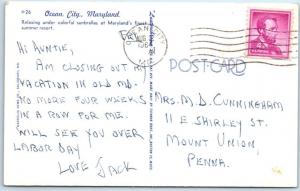 26 Ocean City, Maryland.
Relaxing under colorful umbrellas at Maryland's finest
summer resort.
POST CARD
Hi Auntie,
Am closing out my
vacation in old MD.
No more four weeks
in a row for me.
Will see you over
Labor Day
Love Jack
Mrs. M. D. Cunningham
11 E Shirley St.
Mount Union,
Penna.